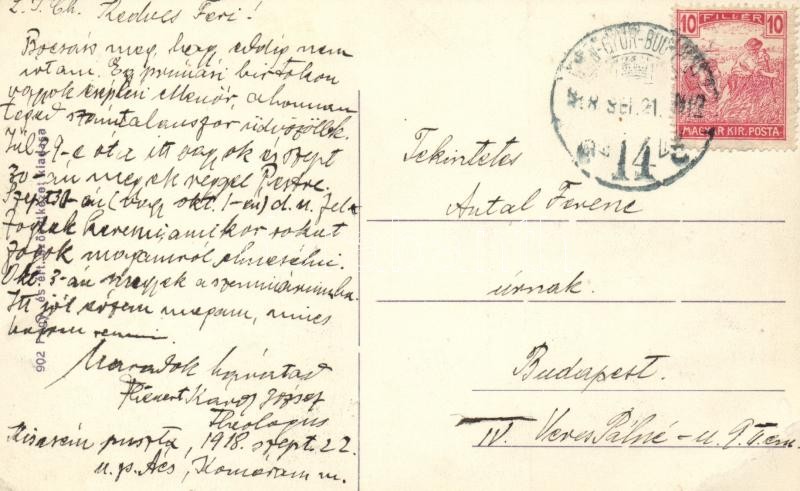 L. J. Ch. Kedves Feri!
Bocsáss meg, hogy eddig nem
irtam. Én primási birtokon
vagyok cséplési ellenőr, ahonnan
téged számtalanszor üdvözöllek.
Júl. 9-e óta itt vagyok és szept
30-án megyek reggel Pestre.
Szept 30-án (vagy okt. 1-én) d. u. fel
foglak keresni, amikor sokat
fogok magamról elmesélni.
Okt. 3-án megyek a szemináriumba.
Itt jól érzem magam, nincs
bajom semmi.
Maradok barátod
Károly József
Theologus
puszta, 1918. szept. 22.
u. p. Ács, Komárom m.
902
kiadása
10 FILLÉR 10
MAGYAR KIR. POSTA
GYŐR-BUD
14
Tekintetes
Antal Ferenc
úrnak.
Budapest.
IV. Veres Pálné-u. 9. I. em.